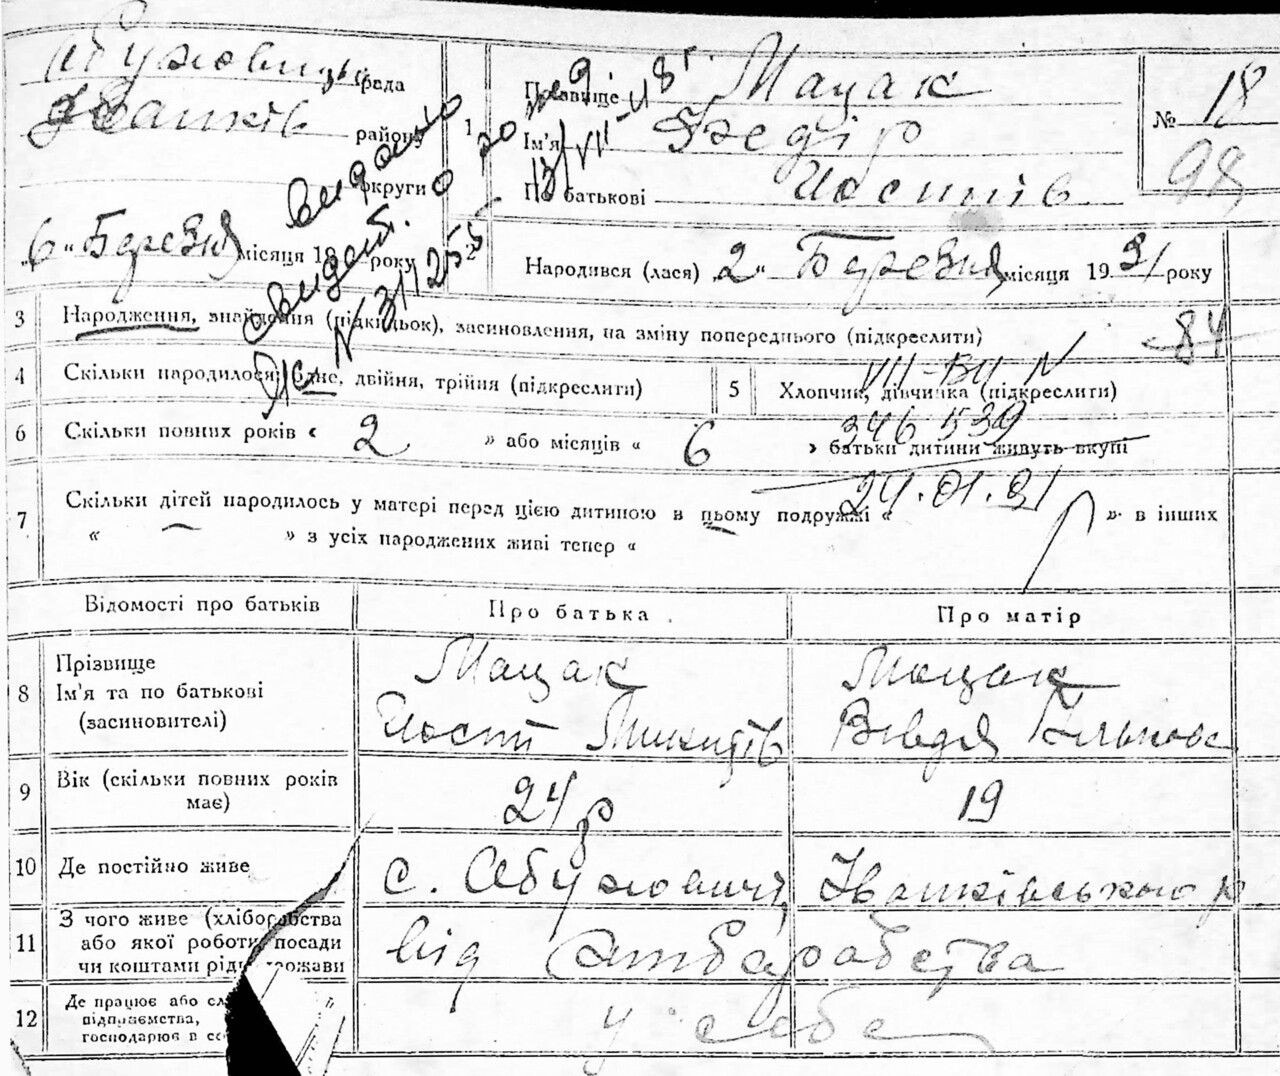 Обуховицька рада
Іванків район
округи
„6“ Березня місяця 19 року
1
Прізвище Мацак
Ім'я Федір
По батькові Йосипів
№ 18
98
видано
свидот. о
2
Народився (лася) „2“ Березня місяця 1931 року
3 Народження, знайдення (підкидьок), засиновлення, на зміну попереднього (підкреслити)
84
4 Скільки народилося: Одне, двійня, трійня (підкреслити)
5 Хлопчик, дівчинка (підкреслити)
VII-БИ N
346 539
6 Скільки повних років « 2 » або місяців « 6 » батьки дитини живуть вкупі
24.01.81
7 Скільки дітей народилось у матері перед цією дитиною в цьому подружжі « » в інших
« » з усіх народжених живі тепер «
Відомості про батьків Про батька Про матір
8 Прізвище Мацак Мацак
Ім'я та по батькові Йосип Микитів Вівдя
(засиновителі)
9 Вік (скільки повних років має) 24 р 19
10 Де постійно живе с. Обуховичі, Іванківського р.
11 З чого живе (хліборобства
або якої роботи, посади
чи коштами рідн держави
від хліборобства
12 Де працює або сл
підприємства,
господарює в се
у себе